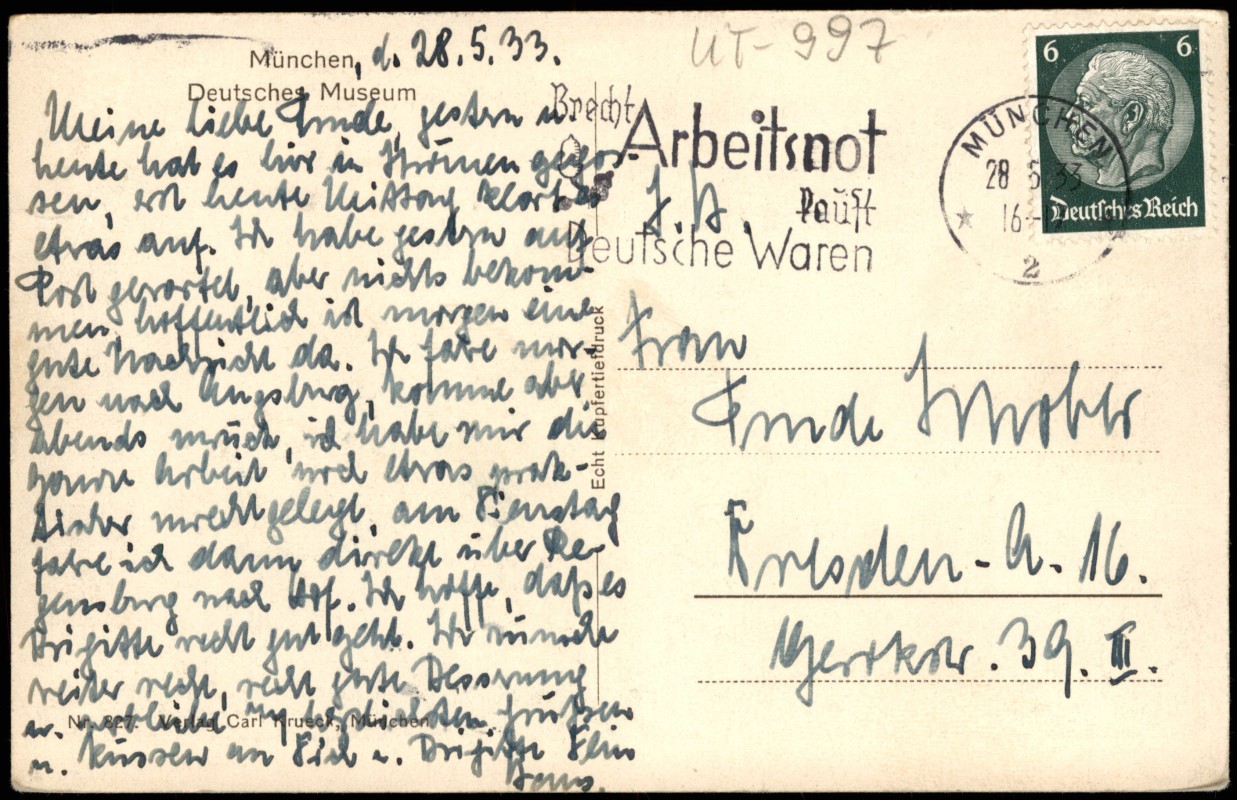 München, d. 28.5.33.
Deutsches Museum
Meine liebe Trude, gestern u.
heute hat es hier in Strömen gegos-
sen, erst heute Mittag klart es
etwas auf. Ich habe gestern auf
Post gewartet, aber nichts bekom-
men, hoffentlich ist morgen eine
gute Nachricht da. Ich fahre mor-
gen nach Augsburg, komme aber
abends zurück, ich habe mir die
ganze Arbeit noch etwas prak-
tischer zurechtgelegt, am Dienstag
fahre ich dann direkt über Re-
gensburg nach Hof. Ich hoffe, daß es
Brigitte recht gut geht. Ich wünsche
weiter recht, recht gute Besserung
u. verbleibe m. herzlichsten Grüßen
u. Küssen an Dich u. Brigitte Dein
Hans.
Nr. 827. Verlag Carl Krueck, München
Echt Kupfertiefdruck
UT-997
Brecht
Arbeitsnot
Kauft
Deutsche Waren
MÜNCHEN
28 5 33
16-
2
6. 6.
Deutsches Reich
Frau
Trude
Dresden-A-16.
39. III.